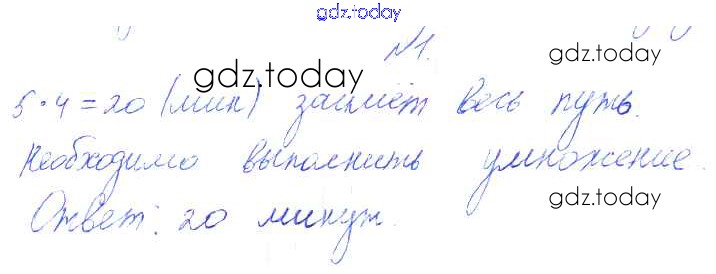 gdz.today
№1. gdz.today
gdz.today
5·4=20 (мин) займёт весь путь.
Необходимо выполнить умножение.
gdz.today
Ответ: 20 минут.